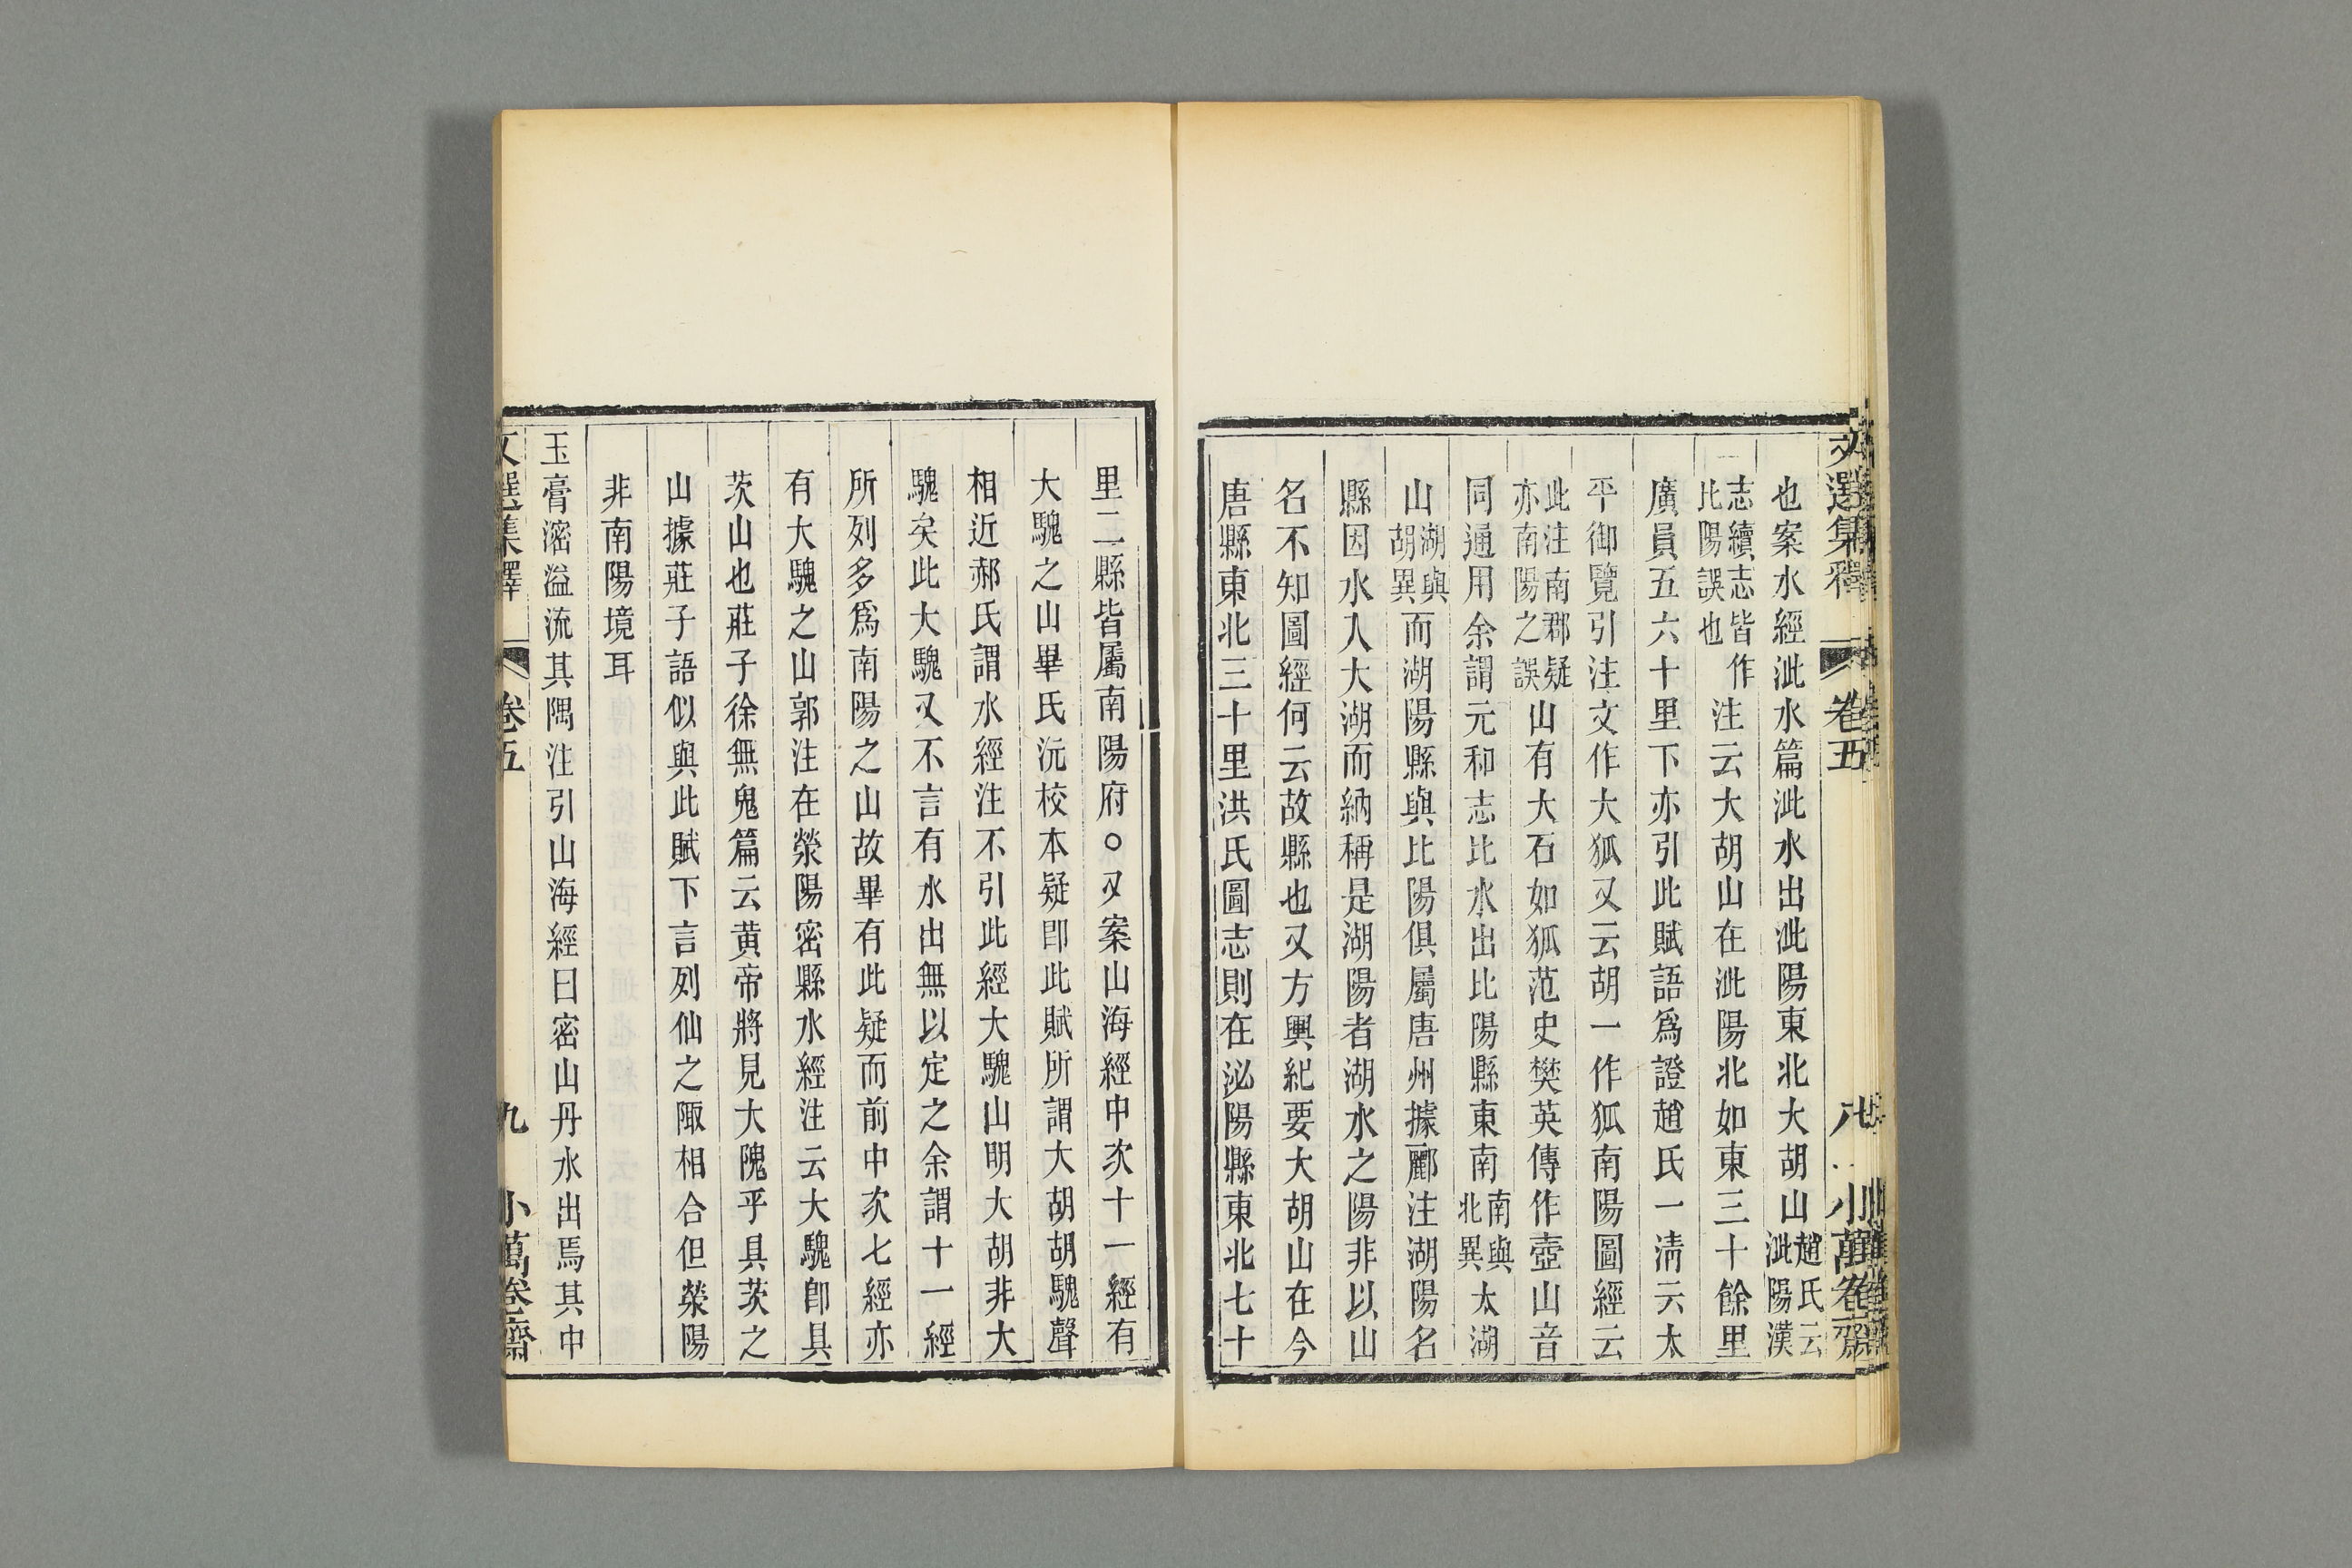 文選集釋 卷五 八 小萬卷齋
也案水經泚水篇泚水出泚陽東北大胡山趙氏云泚陽漢
志續志皆作比陽誤也注云大胡山在泚陽北如東三十餘里
廣員五六十里下亦引此賦語爲證趙氏一淸云太
平御覽引注文作大狐又云胡一作狐南陽圖經云
此注南郡疑亦南陽之誤山有大石如狐范史樊英傳作壺山音
同通用余謂元和志比水出比陽縣東南南與北異太湖
山湖與胡異而湖陽縣與比陽俱屬唐州據酈注湖陽名
縣因水入大湖而納稱是湖陽者湖水之陽非以山
名不知圖經何云故縣也又方輿紀要大胡山在今
唐縣東北三十里洪氏圖志則在泌陽縣東北七十
里二縣皆屬南陽府○又案山海經中次十一經有
大騩之山畢氏沅校本疑卽此賦所謂大胡胡騩聲
相近郝氏謂水經注不引此經大騩山明大胡非大
騩矣此大騩又不言有水出無以定之余謂十一經
所列多爲南陽之山故畢有此疑而前中次七經亦
有大騩之山郭注在滎陽密縣水經注云大騩卽具
茨山也莊子徐無鬼篇云黃帝將見大隗乎具茨之
山據莊子語似與此賦下言列仙之陬相合但滎陽
非南陽境耳
玉膏滵溢流其隅注引山海經曰密山丹水出焉其中
文選集釋 卷五 九 小萬卷齋